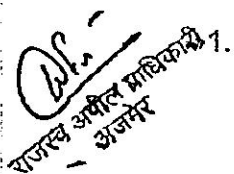 राजस्व अपील प्राधिकारी 1.
अजमेर